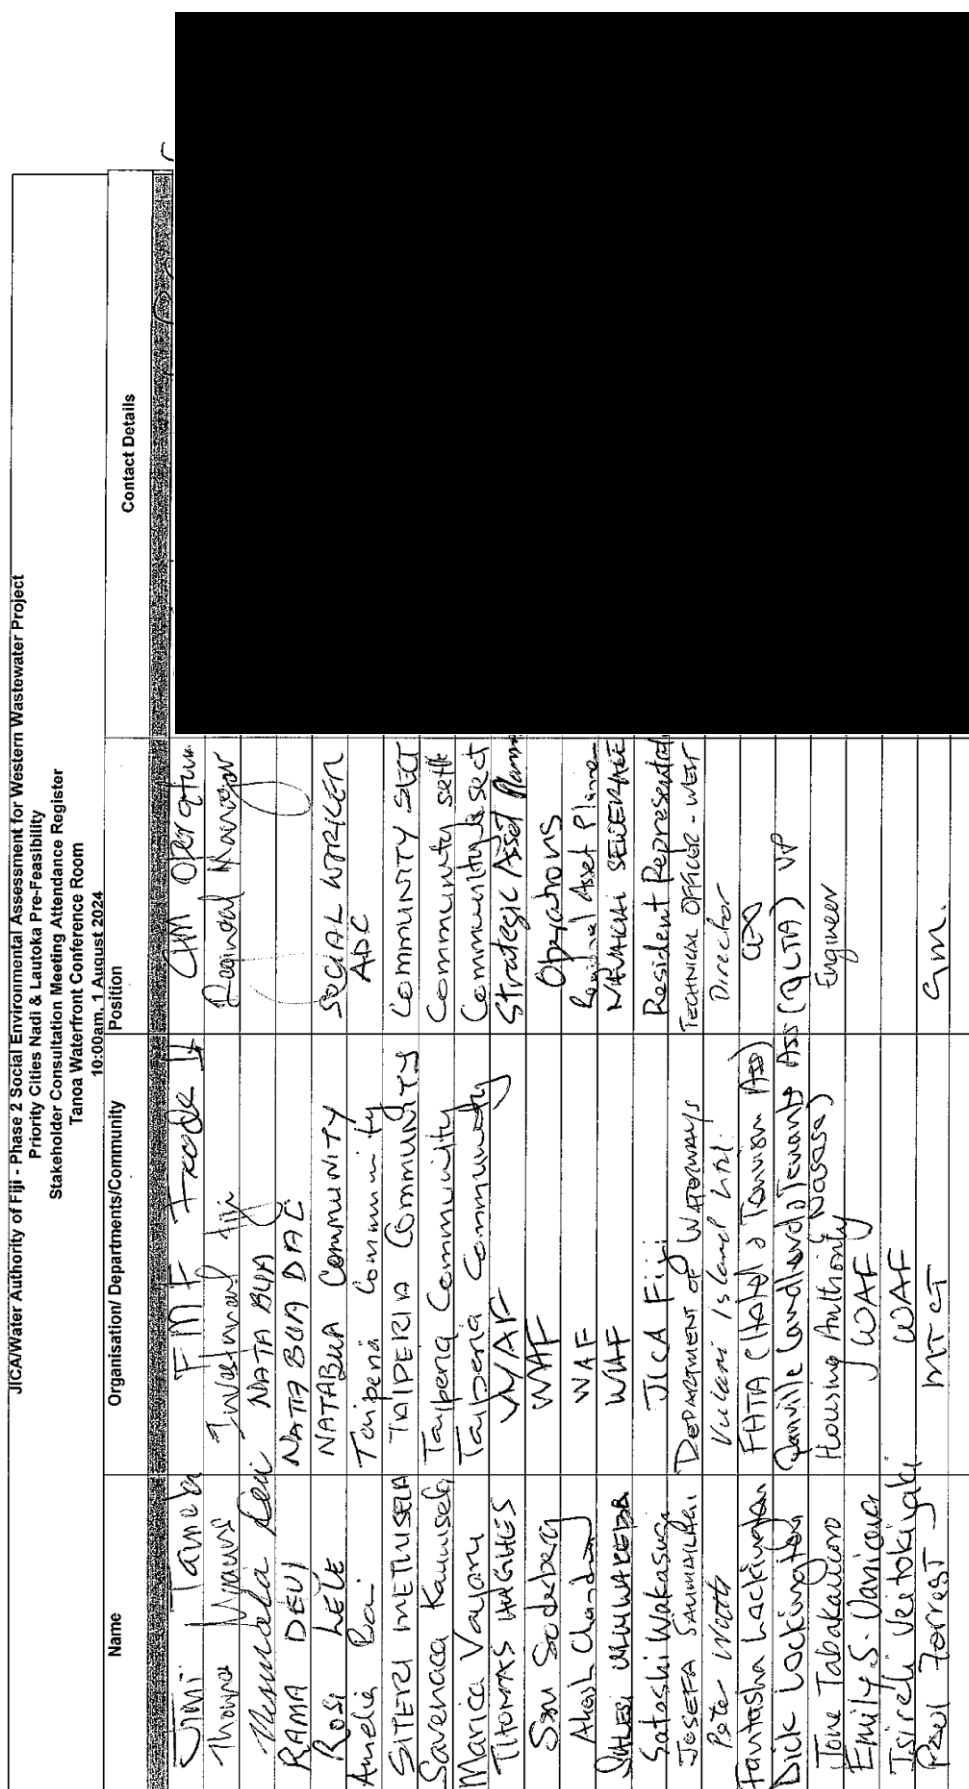 JICA/Water Authority of Fiji - Phase 2 Social Environmental Assessment for Western Wastewater Project
Priority Cities Nadi & Lautoka Pre-Feasibility
Stakeholder Consultation Meeting Attendance Register
Tanoa Waterfront Conference Room
10:00am, 1 August 2024
Name Organisation/ Departments/Community Position Contact Details
FMF GM
Investment Fiji Regional Manager
NATABUA
RAMA DEVI NATABUA DAC
ROSI LETE NATABUA COMMUNITY SOCIAL WORKER
Amelia Taiperia Community ADC
SITERI METHUSELA TAIPERIA COMMUNITY COMMUNITY
Savenaca Taiperia Community Community settle
Marica Taiperia Community Community
THOMAS HUGHES WAF Strategic Asset
Sam Soderberg WAF Operations
Akash Chandra WAF Regional Asset
WAF NAVAKAI SEWERAGE
Satoshi Wakasugi JICA Fiji Resident
JOSEFA DEPARTMENT OF WATERWAYS TECHNICAL OFFICER - WEST
Peter Vulani Island Ltd. Director
Fantasha Lockington FHTA (Hotel & Tourism Ass) CEO
Dick Lockington Landlords & Tenants Ass VP
Jone Tabakaucoro Housing Authority Engineer
Emily S. WAF
Isireli WAF
Paul Forrest MTCT GM.